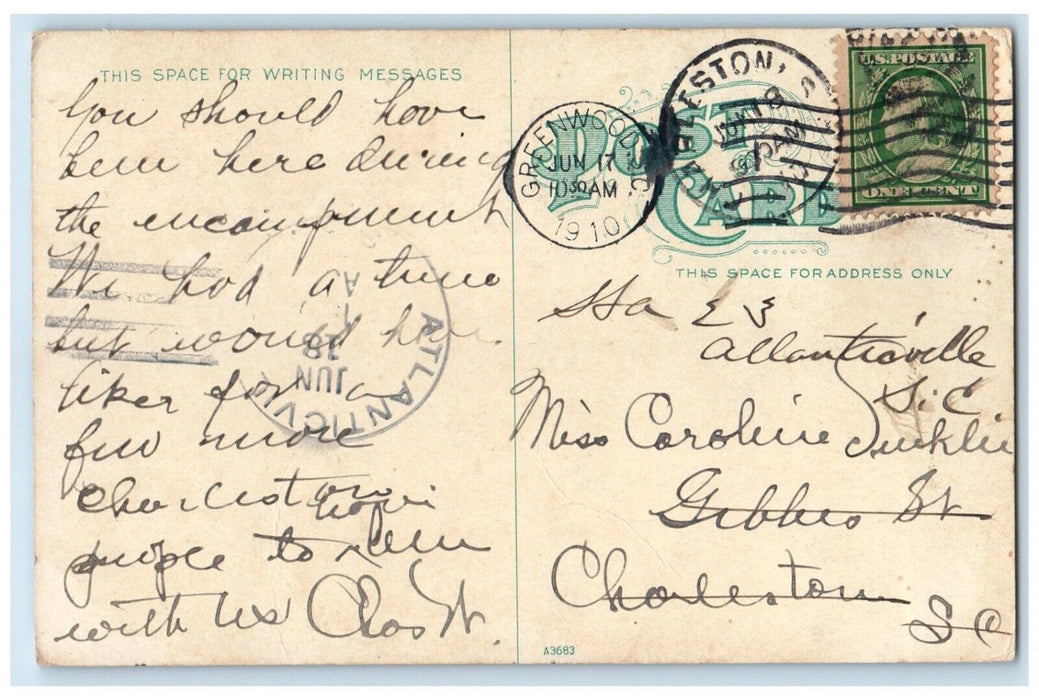 THIS SPACE FOR WRITING MESSAGES
You should have
been here during
the encampment
We had a time
but would have
liked for a
few more
Charlestown
people to
with us Chas W.
GREENWOOD, S.C.
JUN 17
10 30 AM
1910
POST CARD
U.S. POSTAGE
ONE CENT
THIS SPACE FOR ADDRESS ONLY
Sta
Atlanticville
S.C
Miss Caroline
Gibbes St
Charleston
S C
ATLANTICVI
JUN
18
A3683